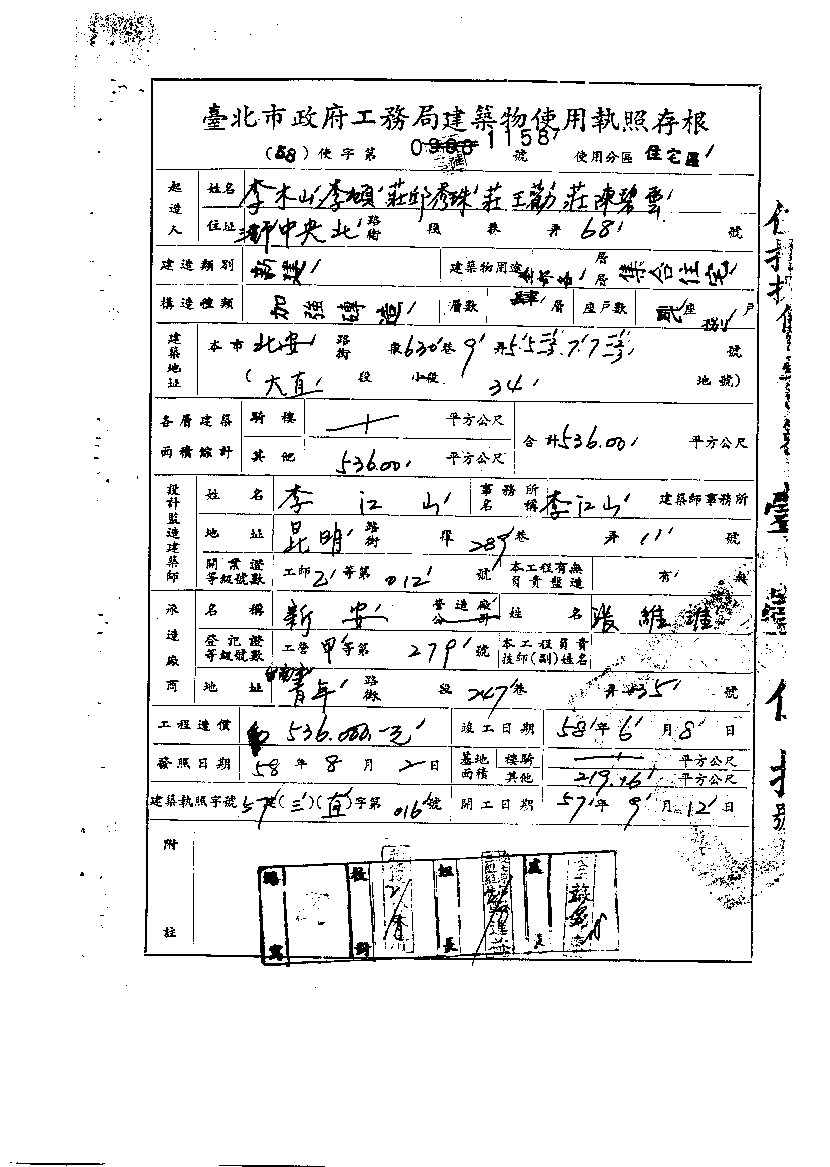 臺北市政府工務局建築物使用執照存根
(58)使字第 1158 號 使用分區 住宅區
起造人 姓名 李木山 李碩 莊邱秀珠 莊王勸 莊陳碧雲
住址 中央北 路街 段 巷 弄 68 號
建造類別 新建 建築物用途 層 層 集合住宅
構造種類 加強磚造 層數 肆 層 座戶數 貳座 捌戶
建築地址 本市 北安 路街 段 630巷 9弄 5. 7. 號
(大直 段 小段 34 地號)
各層建築面積綜計 騎樓 平方公尺 合計 536.00 平方公尺
其他 536.00 平方公尺
設計監造建築師 姓名 李江山 事務所名稱 李江山 建築師事務所
地址 昆明 路街 段 289巷 弄 11 號
開業證等級號數 工師 乙等第 012 號 本工程有無負責監造 有 無
承造廠商 名稱 新安 營造廠公司 姓名 張維雄
登記證等級號數 工營 甲等第 279 號 本工程負責技師(副)姓名
地址 青年 路街 段 247巷 弄 35 號
工程造價 536.000.-元 竣工日期 58年6月8日
發照日期 58年8月2日 基地面積 樓騎 平方公尺
其他 219.46 平方公尺
建築執照字號 57建(三)(直)字第 016 號 開工日期 57年9月12日
附註
校對 組長